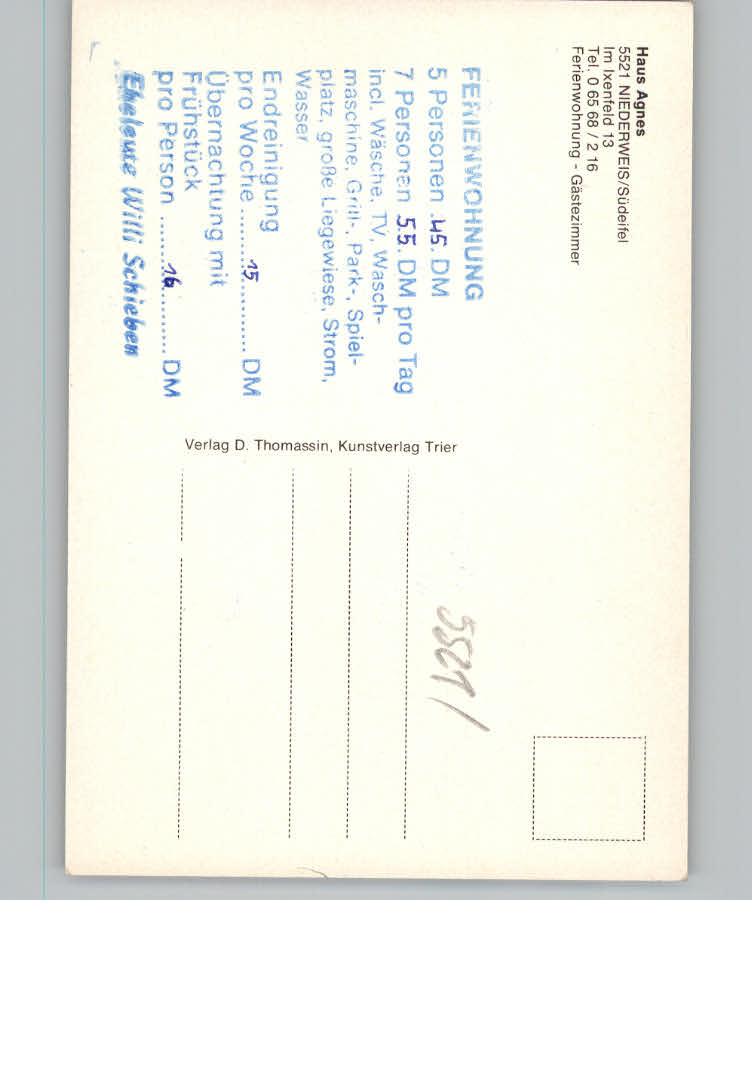 Haus Agnes
5521 NIEDERWEIS/Südeifel
Im Ixenfeld 13
Tel. 0 65 68 / 2 16
Ferienwohnung - Gästezimmer
FERIENWOHNUNG
5 Personen .45. DM
7 Personen .55. DM pro Tag
incl. Wäsche, TV, Wasch-
maschine, Grill-, Park-, Spiel-
platz, große Liegewiese, Strom,
Wasser
Endreinigung
pro Woche ........15............ DM
Übernachtung mit
Frühstück
pro Person .......16.......... DM
Eheleute Willi Schieben
Verlag D. Thomassin, Kunstverlag Trier
5521 /